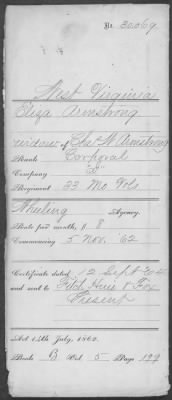 No. 30069
West Virginia
Eliza Armstrong
widow of Chas W Armstrong
Rank Corporal
Company "D"
Regiment 23 Mo Vols
Wheeling Agency.
Rate per month, $ 8
Commencing 5 Nov. '62
Certificate dated 12 Sept
and sent to Fitch
Present
Act 14th July, 1862.
Book B Vol 5 Page 199